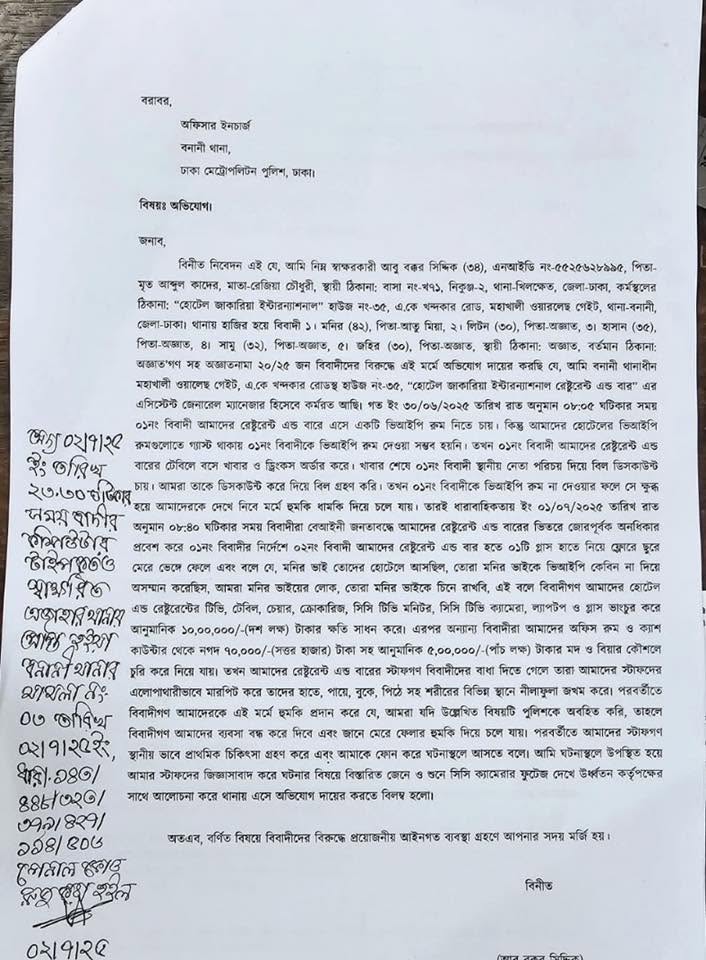 বরাবর,
অফিসার ইনচার্জ
বনানী থানা,
ঢাকা মেট্রোপলিটন পুলিশ, ঢাকা।
বিষয়ঃ অভিযোগ।
জনাব,
বিনীত নিবেদন এই যে, আমি নিম্ন স্বাক্ষরকারী আবু বক্কর সিদ্দিক (৩৪), এনআইডি নং-৫৫২৫৬২৮৯৯৫, পিতা-
মৃত আব্দুল কাদের, মাতা-রেজিয়া চৌধুরী, স্থায়ী ঠিকানা: বাসা নং-খ৭১, নিকুঞ্জ-২, থানা-খিলক্ষেত, জেলা-ঢাকা, কর্মস্থলের
ঠিকানা: “হোটেল জাকারিয়া ইন্টারন্যাশনাল” হাউজ নং-৩৫, এ.কে খন্দকার রোড, মহাখালী ওয়ারলেছ গেইট, থানা-বনানী,
জেলা-ঢাকা। থানায় হাজির হয়ে বিবাদী ১। মনির (৪২), পিতা-আতু মিয়া, ২। লিটন (৩০), পিতা-অজ্ঞাত, ৩। হাসান (৩৫),
পিতা-অজ্ঞাত, ৪। সামু (৩২), পিতা-অজ্ঞাত, ৫। জহির (৩০), পিতা-অজ্ঞাত, স্থায়ী ঠিকানা: অজ্ঞাত, বর্তমান ঠিকানা:
অজ্ঞাত'গণ সহ অজ্ঞাতনামা ২০/২৫ জন বিবাদীদের বিরুদ্ধে এই মর্মে অভিযোগ দায়ের করছি যে, আমি বনানী থানাধীন
মহাখালী ওয়ালেছ গেইট, এ.কে খন্দকার রোডস্থ হাউজ নং-৩৫, “হোটেল জাকারিয়া ইন্টারন্যাশনাল রেষ্টুরেন্ট এন্ড বার” এর
এসিস্টেন্ট জেনারেল ম্যানেজার হিসেবে কর্মরত আছি। গত ইং ৩০/০৬/২০২৫ তারিখ রাত অনুমান ০৮:০৫ ঘটিকার সময়
০১নং বিবাদী আমাদের রেষ্টুরেন্ট এন্ড বারে এসে একটি ভিআইপি রুম নিতে চায়। কিন্তু আমাদের হোটেলের ভিআইপি
রুমগুলোতে গ্যাস্ট থাকায় ০১নং বিবাদীকে ভিআইপি রুম দেওয়া সম্ভব হয়নি। তখন ০১নং বিবাদী আমাদের রেষ্টুরেন্ট এন্ড
বারের টেবিলে বসে খাবার ও ড্রিংকস অর্ডার করে। খাবার শেষে ০১নং বিবাদী স্থানীয় নেতা পরিচয় দিয়ে বিল ডিসকাউন্ট
চায়। আমরা তাকে ডিসকাউন্ট করে দিয়ে বিল গ্রহণ করি। তখন ০১নং বিবাদীকে ভিআইপি রুম না দেওয়ার ফলে সে ক্ষুব্ধ
হয়ে আমাদেরকে দেখে নিবে মর্মে হুমকি ধামকি দিয়ে চলে যায়। তারই ধারাবাহিকতায় ইং ০১/০৭/২০২৫ তারিখ রাত
অনুমান ০৮:৪০ ঘটিকার সময় বিবাদীরা বেআইনী জনতাবদ্ধে আমাদের রেষ্টুরেন্ট এন্ড বারের ভিতরে জোরপূর্বক অনধিকার
প্রবেশ করে ০১নং বিবাদীর নির্দেশে ০২নং বিবাদী আমাদের রেষ্টুরেন্ট এন্ড বার হতে ০১টি গ্লাস হাতে নিয়ে ফ্লোরে ছুরে
মেরে ভেঙ্গে ফেলে এবং বলে যে, মনির ভাই তোদের হোটেলে আসছিল, তোরা মনির ভাইকে ভিআইপি কেবিন না দিয়ে
অসম্মান করেছিস, আমরা মনির ভাইয়ের লোক, তোরা মনির ভাইকে চিনে রাখবি, এই বলে বিবাদীগণ আমাদের হোটেল
এন্ড রেষ্টুরেন্টের টিভি, টেবিল, চেয়ার, ক্রোকারিজ, সিসি টিভি মনিটর, সিসি টিভি ক্যামেরা, ল্যাপটপ ও গ্লাস ভাংচুর করে
আনুমানিক ১০,০০,০০০/-(দশ লক্ষ) টাকার ক্ষতি সাধন করে। এরপর অন্যান্য বিবাদীরা আমাদের অফিস রুম ও ক্যাশ
কাউন্টার থেকে নগদ ৭০,০০০/-(সত্তর হাজার) টাকা সহ আনুমানিক ৫,০০,০০০/-(পাঁচ লক্ষ) টাকার মদ ও বিয়ার কৌশলে
চুরি করে নিয়ে যায়। তখন আমাদের রেষ্টুরেন্ট এন্ড বারের স্টাফগণ বিবাদীদের বাধা দিতে গেলে তারা আমাদের স্টাফদের
এলোপাথারীভাবে মারপিট করে তাদের হাতে, পায়ে, বুকে, পিঠে সহ শরীরের বিভিন্ন স্থানে নীলাফুলা জখম করে। পরবর্তীতে
বিবাদীগণ আমাদেরকে এই মর্মে হুমকি প্রদান করে যে, আমরা যদি উল্লেখিত বিষয়টি পুলিশকে অবহিত করি, তাহলে
বিবাদীগণ আমাদের ব্যবসা বন্ধ করে দিবে এবং জানে মেরে ফেলার হুমকি দিয়ে চলে যায়। পরবর্তীতে আমাদের স্টাফগণ
স্থানীয় ভাবে প্রাথমিক চিকিৎসা গ্রহণ করে এবং আমাকে ফোন করে ঘটনাস্থলে আসতে বলে। আমি ঘটনাস্থলে উপস্থিত হয়ে
আমার স্টাফদের জিজ্ঞাসাবাদ করে ঘটনার বিষয়ে বিস্তারিত জেনে ও শুনে সিসি ক্যামেরার ফুটেজ দেখে উর্ধ্বতন কর্তৃপক্ষের
সাথে আলোচনা করে থানায় এসে অভিযোগ দায়ের করতে বিলম্ব হলো।
অতএব, বর্ণিত বিষয়ে বিবাদীদের বিরুদ্ধে প্রয়োজনীয় আইনগত ব্যবস্থা গ্রহণে আপনার সদয় মর্জি হয়।
বিনীত
(আবু বক্কর সিদ্দিক)
অদ্য ০২/৭/২৫
ইং তারিখ
২৩.৩০ ঘটিকার
সময় বাদীর
কম্পিউটার
টাইপকৃত ও
স্বাক্ষরিত
এজাহার থানায়
প্রাপ্ত হইয়া
বনানী থানার
মামলা নং
০৩ তারিখ
০২/৭/২৫ইং,
ধারা-১৪৩/
৪৪৮/৩২৩/
৩৭৯/৪২৭/
১১৪/৫০৬
পেনাল কোড
রুজু করা হইল
০২/৭/২৫